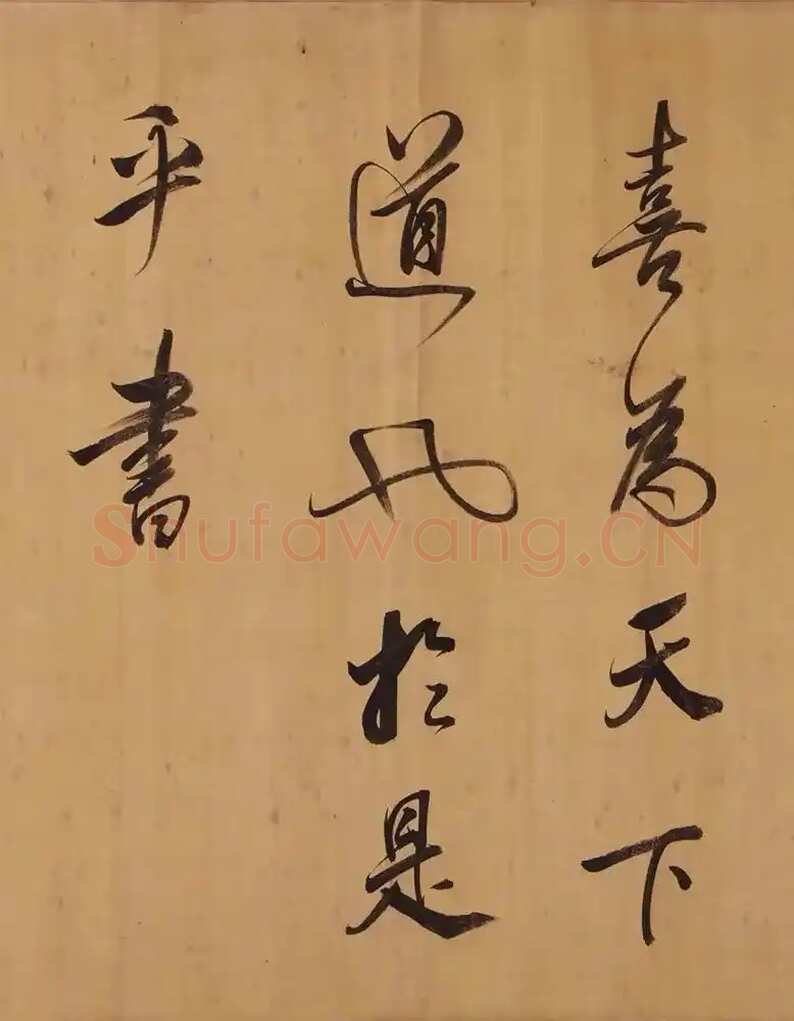 喜為天下
道也於是
乎書
Shufawang.CN